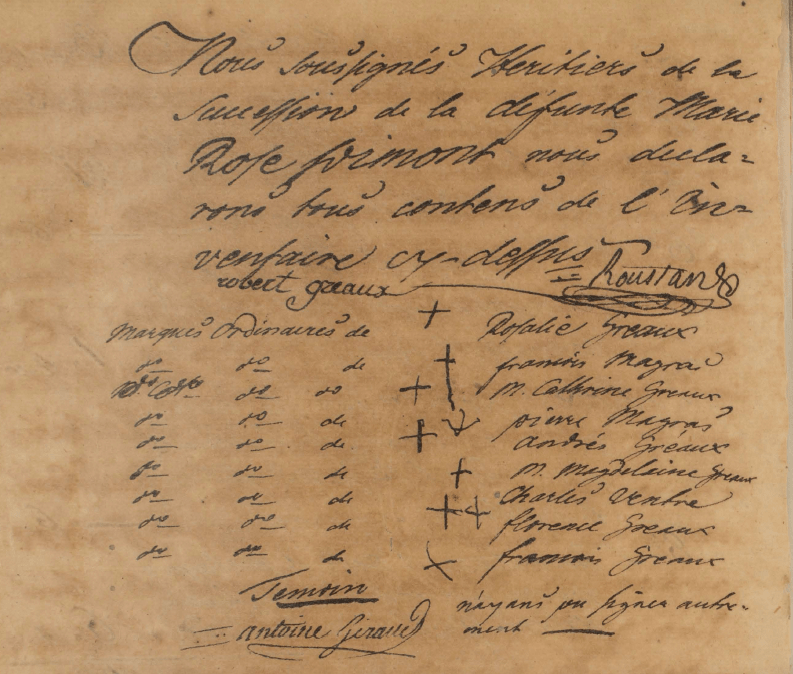 Nous soussignés Heritiers de la
Succession de la défunte Marie
Rose Grimont nous decla-
rons tous contens de l'In-
ventaire cy-dessus
robert greaux Roustan
Marques Ordinaires de + Rosalie Greaux
do do de + francois Magras
do do + M. Cathrine Greaux
do do de pierre Magras
do do de + andrés Gréaux
do do de + M. Magdelaine Greaux
do do de + Charles Ventre
do do de + florence Greaux
do do de x francois Greaux
Temoin n'ayans pu signer autre-
antoine Giraud ment